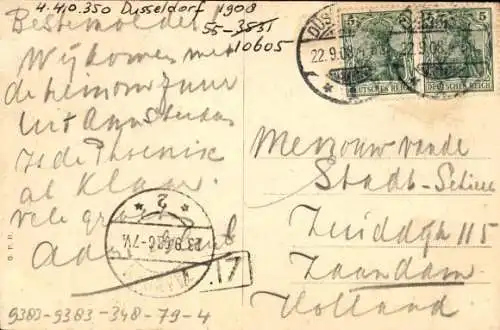 4.40.350 Dusseldorf 1908
55-3531
10605
Beste moeder
Wij komen met
de trein van 7 uur
uit Amsterdam
Is de Phoenix
al klaar
vele groet
Ad
Mevrouw van de
Stadt-
Zuiddijk 115
Zaandam
Holland
5 5
DEUTSCHES REICH DEUTSCHES REICH
DÜSS
22.9.08
22.9.08
2
23.9.08 6-7V
17
9383-9383-348-79-4